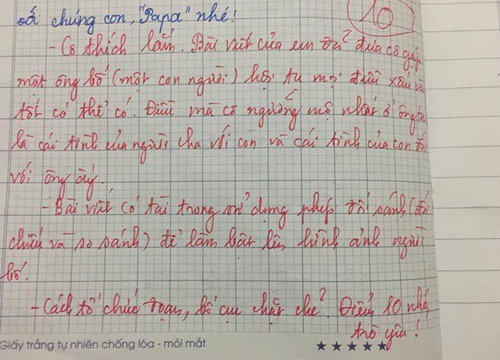 với chúng con, "Papa" nhé!
10
- Cô thích lắm. Bài viết của em đã đưa cô gặp
một ông bố (một con người) hội tụ mọi điều xấu và
tốt có thể có. Điều mà cô ngưỡng mộ nhất ở ông ta
là cái tình của người cha với con và cái tình của con đối
với ông ấy.
- Bài viết có tài trong sử dụng phép đối sánh (đối
chiếu và so sánh) để làm bật lên hình ảnh người
bố.
- Cách tổ chức đoạn, bố cục chặt chẽ. Điểm 10 nhé
trò yêu!
Giấy trắng tự nhiên chống lóa - mỏi mắt